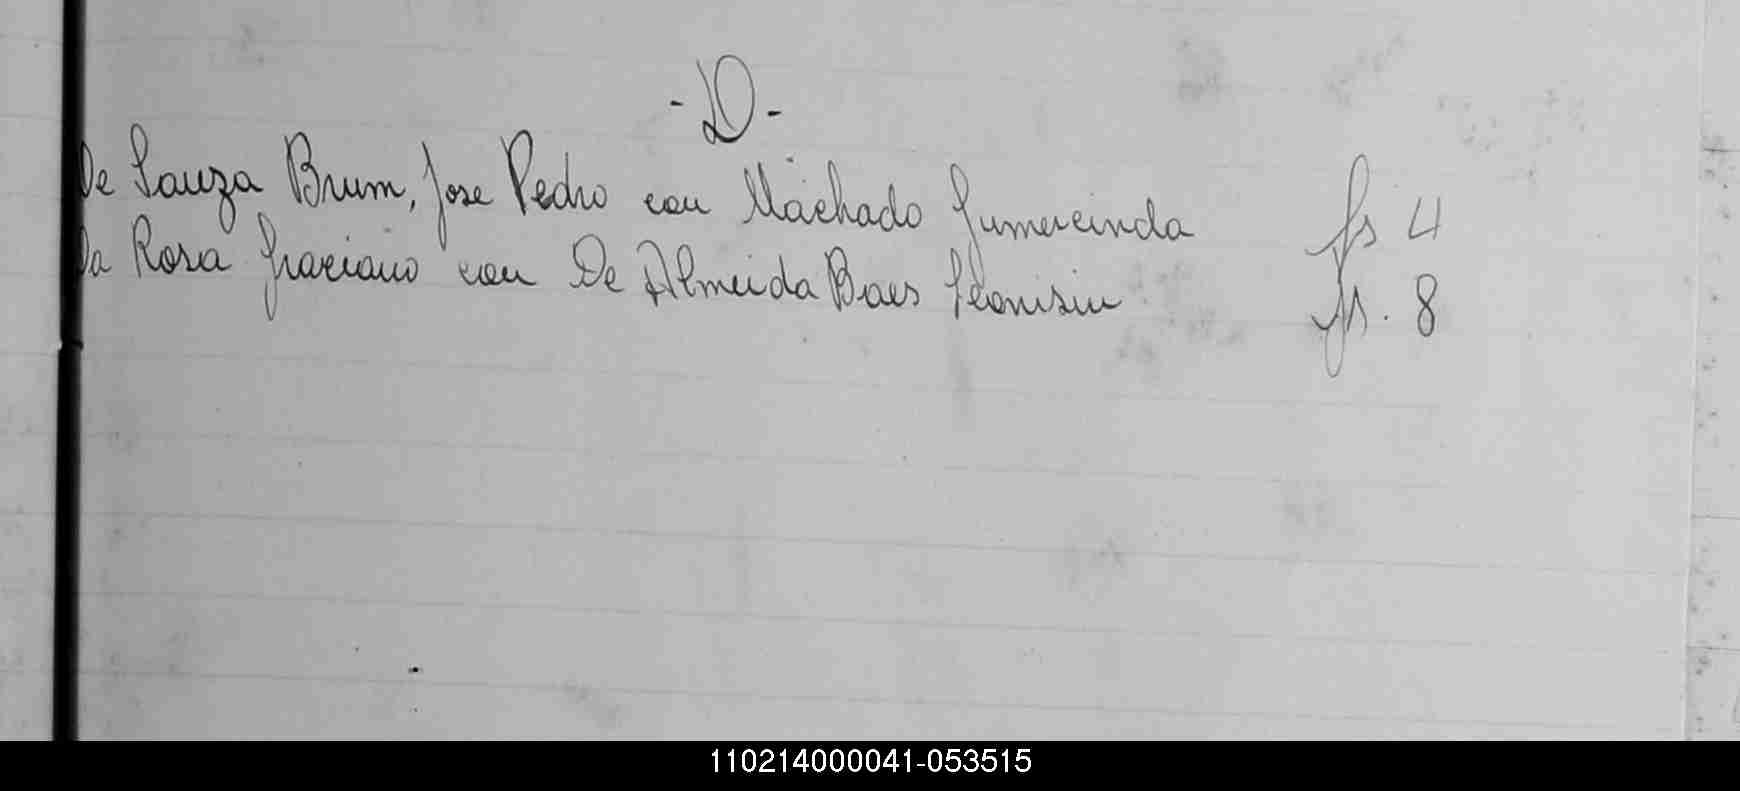 - D -
De Souza Brum, Jose Pedro con Machado Gumercinda fs 4
Da Rosa Graciano con De Almeida Baes fs. 8
110214000041-053515